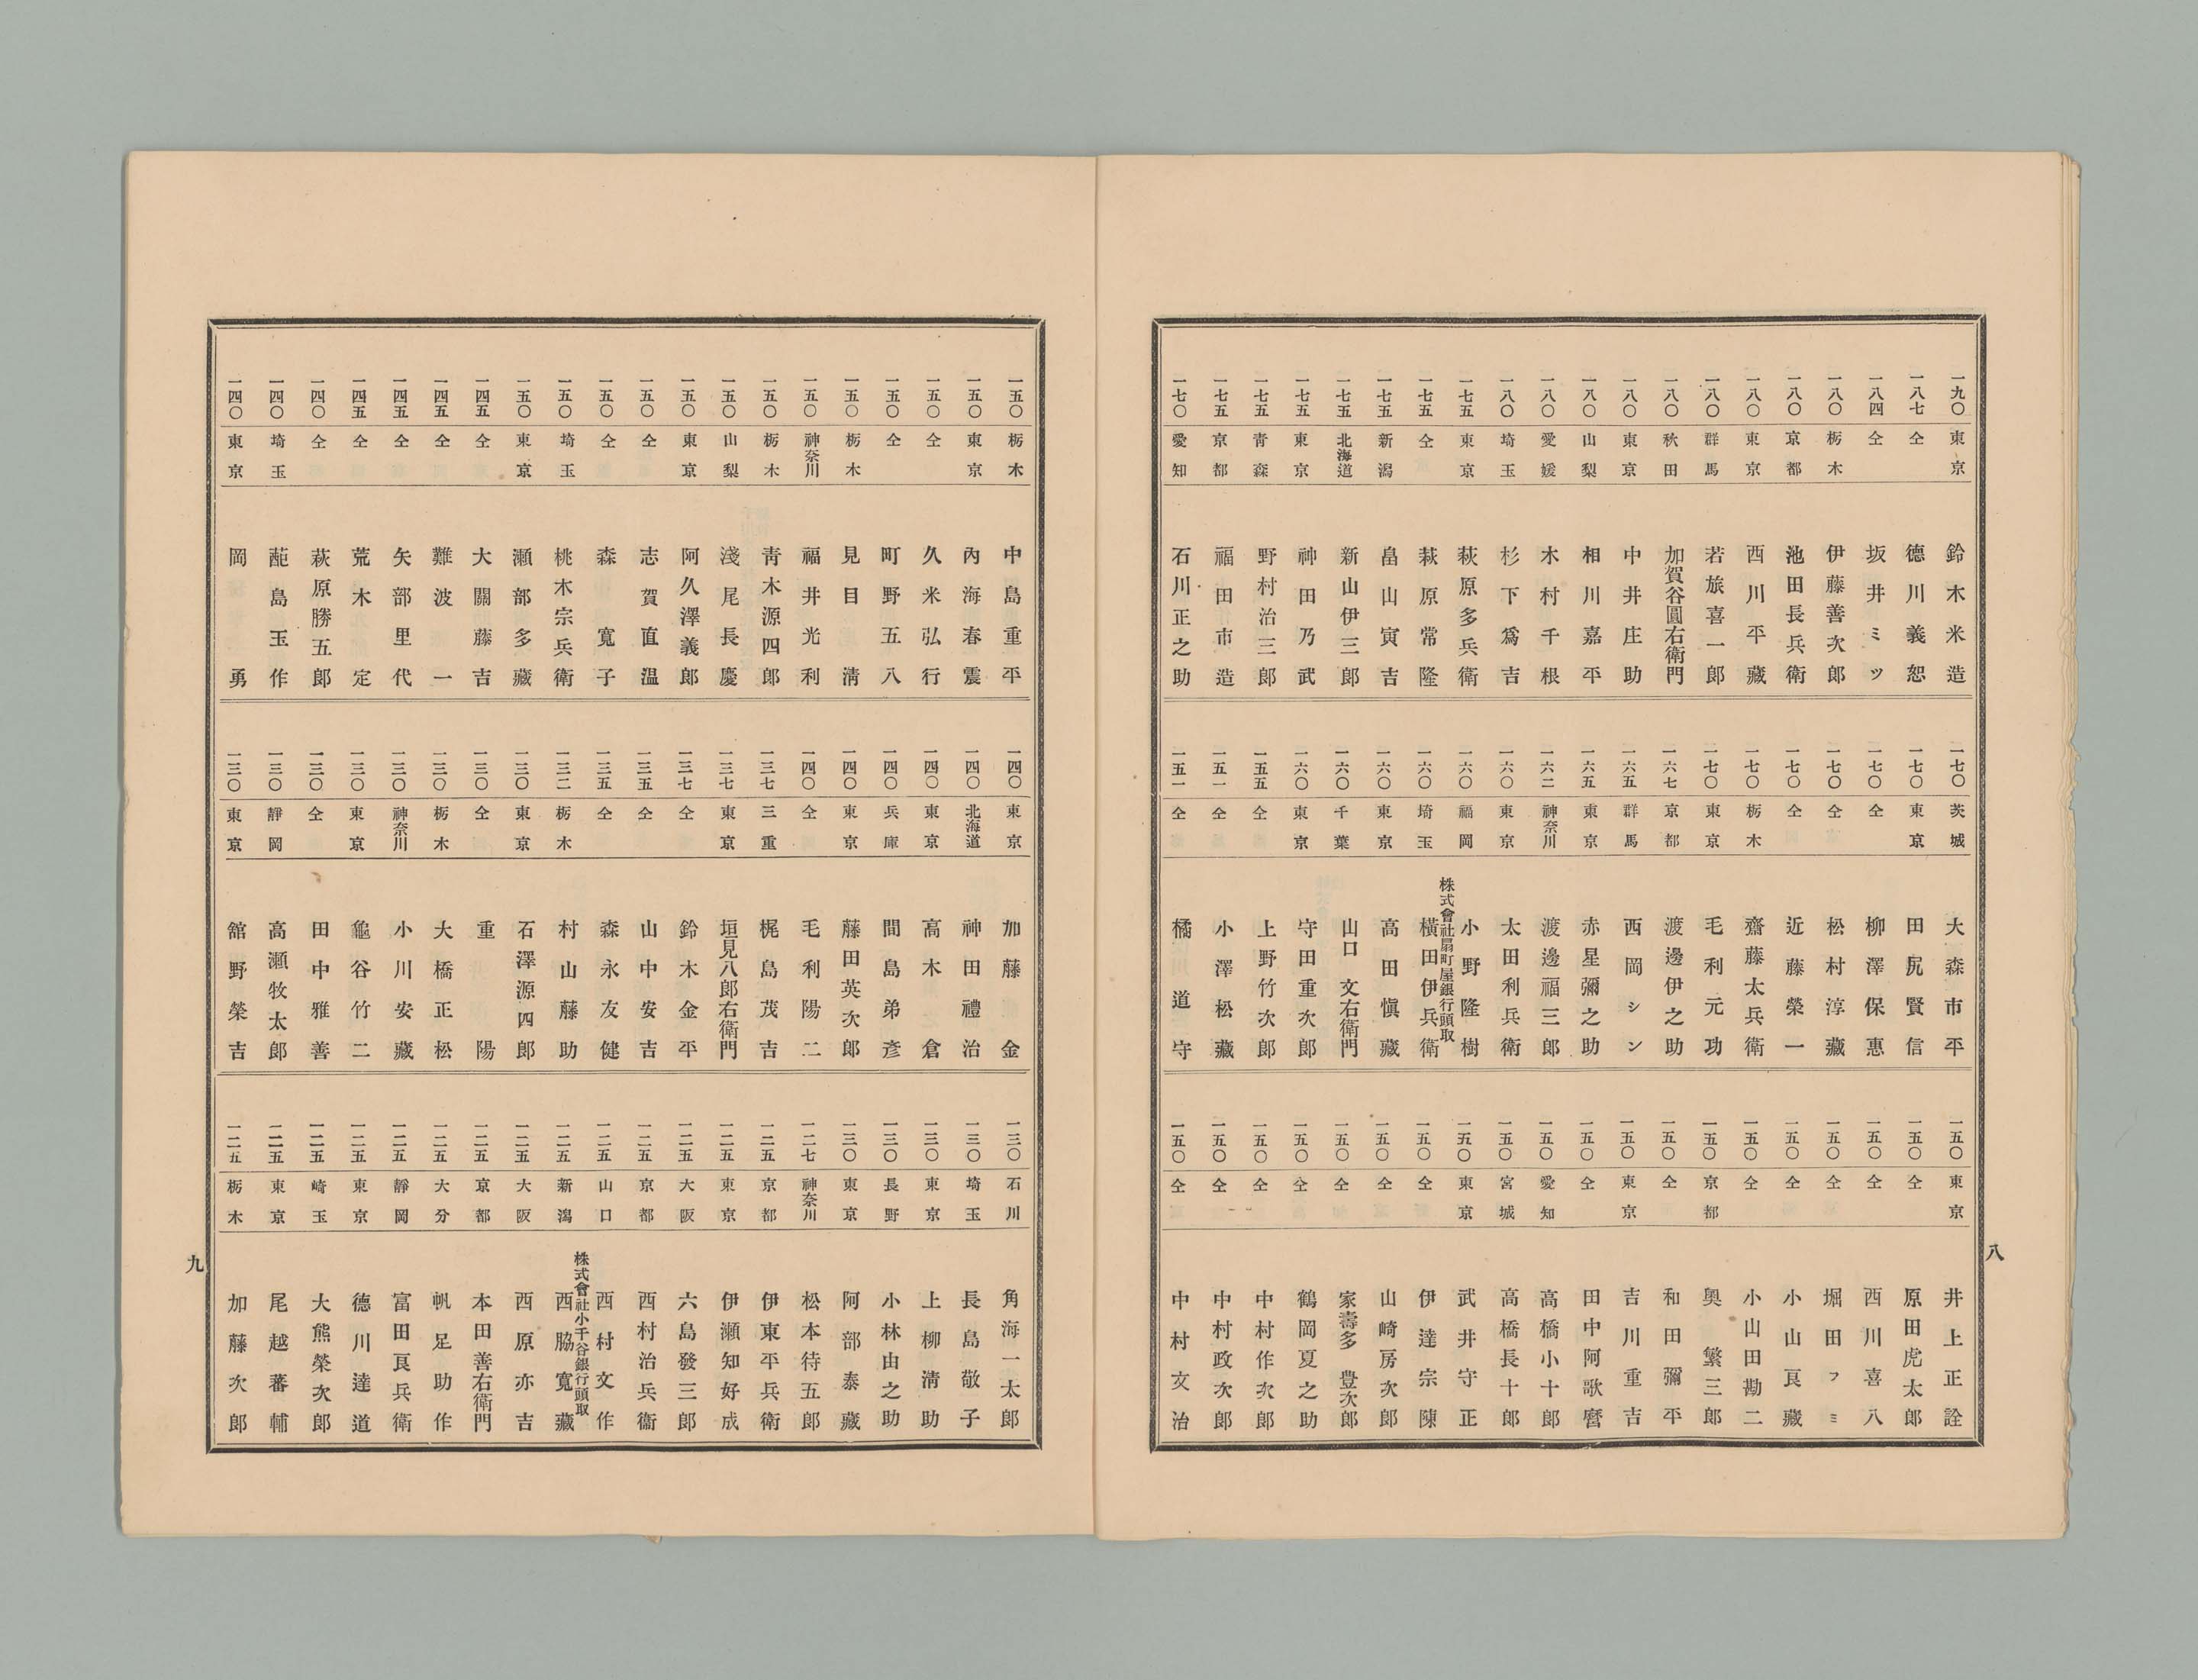 一九〇 東京 鈴木米造
一八七 仝 德川義恕
一八四 仝 坂井ミツ
一八〇 栃木 伊藤善次郎
一八〇 京都 池田長兵衛
一八〇 東京 西川平藏
一八〇 群馬 若旅喜一郎
一八〇 秋田 加賀谷圓右衛門
一八〇 東京 中井庄助
一八〇 山梨 相川嘉平
一八〇 愛媛 木村千根
一八〇 埼玉 杉下爲吉
一七五 東京 萩原多兵衛
一七五 仝 萩原常隆
一七五 新潟 畠山寅吉
一七五 北海道 新山伊三郎
一七五 東京 神田乃武
一七五 青森 野村治三郎
一七五 京都 福田市造
一七〇 愛知 石川正之助
一七〇 茨城 大森市平
一七〇 東京 田尻賢信
一七〇 仝 柳澤保惠
一七〇 仝 松村淳藏
一七〇 仝 近藤榮一
一七〇 栃木 齋藤太兵衛
一七〇 東京 毛利元功
一六七 京都 渡邊伊之助
一六五 群馬 西岡シン
一六五 東京 赤星彌之助
一六二 神奈川 渡邊福三郎
一六〇 東京 太田利兵衛
一六〇 福岡 小野隆樹
一六〇 埼玉 株式會社扇町屋銀行頭取 橫田伊兵衛
一六〇 東京 高田愼藏
一六〇 千葉 山口文右衛門
一六〇 東京 守田重次郎
一五五 仝 上野竹次郎
一五一 仝 小澤松藏
一五一 仝 橘道守
一五〇 東京 井上正詮
一五〇 仝 原田虎太郎
一五〇 仝 西川喜八
一五〇 仝 堀田フミ
一五〇 仝 小山良藏
一五〇 仝 小山田勘二
一五〇 京都 奧繁三郎
一五〇 仝 和田彌平
一五〇 東京 吉川重吉
一五〇 仝 田中阿歌麿
一五〇 愛知 高橋小十郎
一五〇 宮城 高橋長十郎
一五〇 東京 武井守正
一五〇 仝 伊達宗陳
一五〇 仝 山崎房次郎
一五〇 仝 家壽多豊次郎
一五〇 仝 鶴岡夏之助
一五〇 仝 中村作次郎
一五〇 仝 中村政次郎
一五〇 仝 中村文治
八
一五〇 栃木 中島重平
一五〇 東京 內海春震
一五〇 仝 久米弘行
一五〇 仝 町野五八
一五〇 栃木 見目清
一五〇 神奈川 福井光利
一五〇 栃木 青木源四郎
一五〇 山梨 淺尾長慶
一五〇 東京 阿久澤義郎
一五〇 仝 志賀直温
一五〇 仝 森寬子
一五〇 埼玉 桃木宗兵衛
一五〇 東京 瀨部多藏
一四五 仝 大關藤吉
一四五 仝 難波一
一四五 仝 矢部里代
一四五 仝 荒木定
一四〇 仝 萩原勝五郎
一四〇 埼玉 蓜島玉作
一四〇 東京 岡勇
一四〇 東京 加藤金
一四〇 北海道 神田禮治
一四〇 東京 高木倉
一四〇 兵庫 間島弟彥
一四〇 東京 藤田英次郎
一四〇 仝 毛利陽二
一三七 三重 梶島茂吉
一三七 東京 垣見八郎右衛門
一三七 仝 鈴木金平
一三五 仝 山中安吉
一三五 仝 森永友健
一三二 栃木 村山藤助
一三〇 東京 石澤源四郎
一三〇 仝 重陽
一三〇 栃木 大橋正松
一三〇 神奈川 小川安藏
一三〇 東京 龜谷竹二
一三〇 仝 田中雅善
一三〇 靜岡 高瀬牧太郎
一三〇 東京 舘野榮吉
一三〇 石川 角海一太郎
一三〇 埼玉 長島敬子
一三〇 東京 上柳清助
一三〇 長野 小林由之助
一三〇 東京 阿部泰藏
一二七 神奈川 松本待五郎
一二五 京都 伊東平兵衛
一二五 東京 伊瀬知好成
一二五 大阪 六島發三郎
一二五 京都 西村治兵衞
一二五 山口 西村文作
一二五 新潟 株式會社小千谷銀行頭取 西脇寬藏
一二五 大阪 西原亦吉
一二五 京都 本田善右衛門
一二五 大分 帆足助作
一二五 靜岡 富田良兵衛
一二五 東京 德川達道
一二五 崎玉 大熊榮次郎
一二五 東京 尾越蕃輔
一二五 栃木 加藤次郎
九